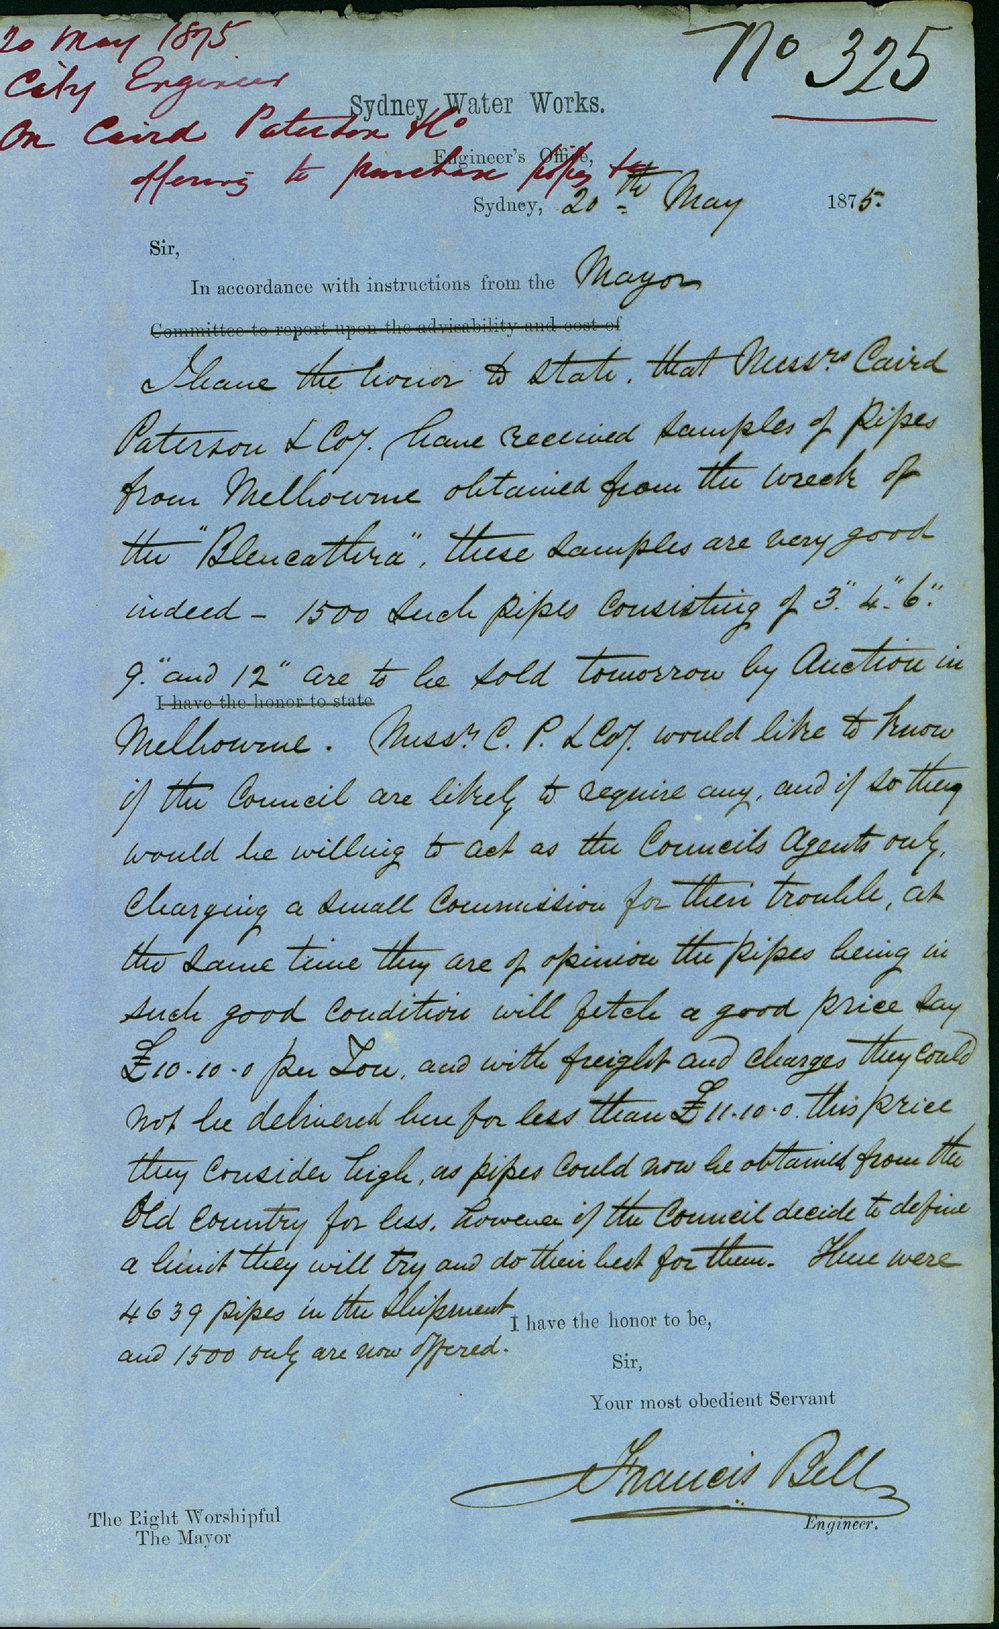 20 May 1875
City Engineer
On Caird Paterson & Co
offering to purchase pipes &c
No 325
Sydney Water Works.
Engineer's Office,
Sydney, 20th May 1875.
Sir,
In accordance with instructions from the Mayor
Committee to report upon the advisability and cost of
I have the honor to state, that Messrs Caird
Paterson & Coy. have received samples of pipes
from Melbourne obtained from the wreck of
the "Blencathra", these samples are very good
indeed - 1500 such pipes consisting of 3" 4" 6"
9" and 12" are to be sold tomorrow by Auction in
I have the honor to state
Melbourne. Messrs C. P. & Coy. would like to know
if the Council are likely to require any, and if so they
would be willing to act as the Councils Agents only,
charging a small Commission for their trouble, at
the same time they are of opinion the pipes being in
such good condition will fetch a good price say
£10-10-0 per Ton, and with freight and charges they could
not be delivered here for less than £11-10-0. this price
they consider high, as pipes could now be obtained from the
Old Country for less, however if the Council decide to define
a limit they will try and do their best for them. There were
4639 pipes in the Shipment
and 1500 only are now offered.
I have the honor to be,
Sir,
Your most obedient Servant
Francis Bell
Engineer.
The Right Worshipful
The Mayor